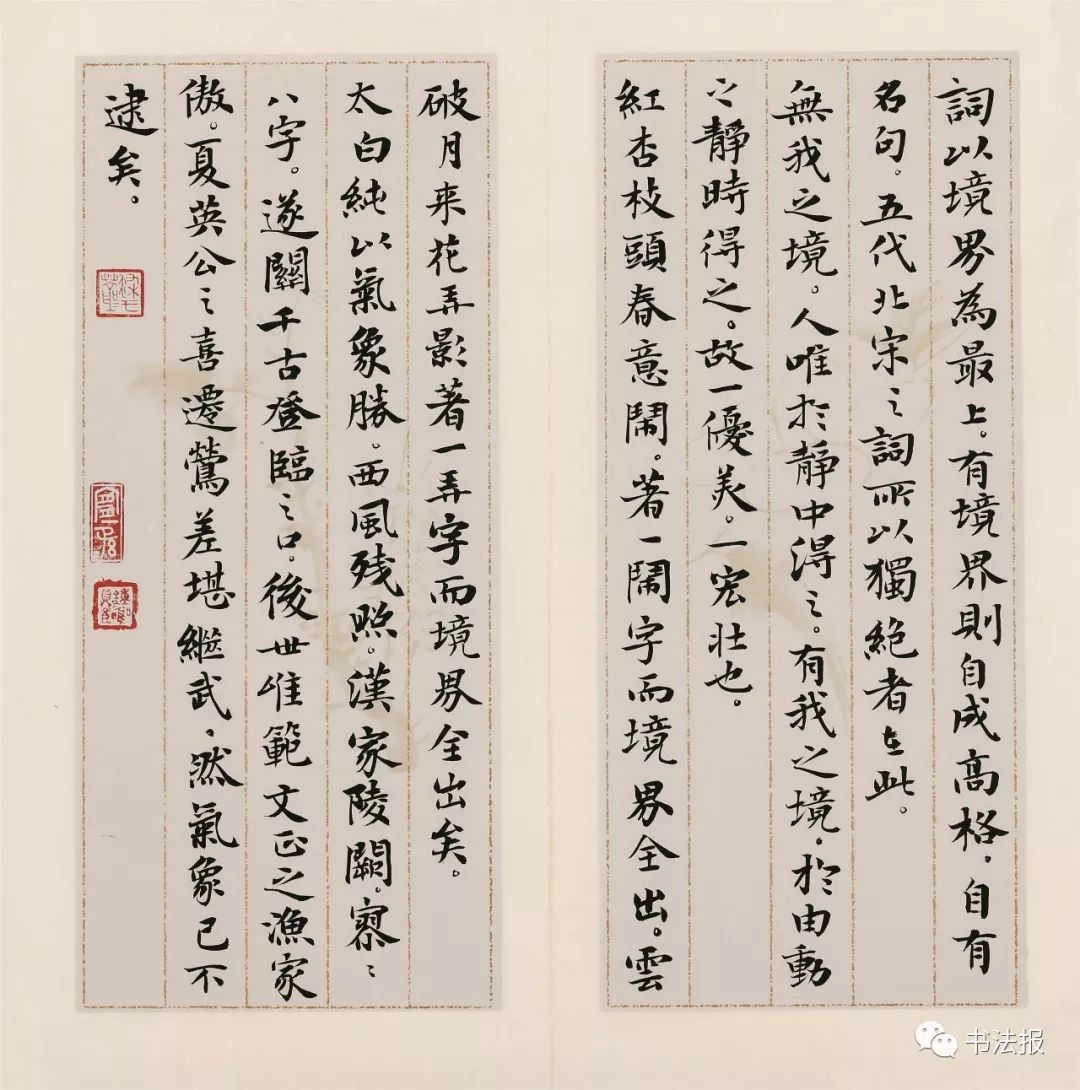 詞以境界為最上。有境界則自成高格，自有
名句。五代北宋之詞所以獨絕者在此。
無我之境。人唯於静中得之。有我之境，於由動
之静時得之。故一優美。一宏壯也。
紅杏枝頭春意鬧。著一鬧字而境界全出。雲
破月来花弄影著一弄字而境界全出矣。
太白純以氣象勝。西風残照。漢家陵闕。寥〻
八字。遂關千古登臨之口。後世唯範文正之漁家
傲。夏英公之喜遷鶯差堪繼武，然氣象已不
逮矣。
书法报